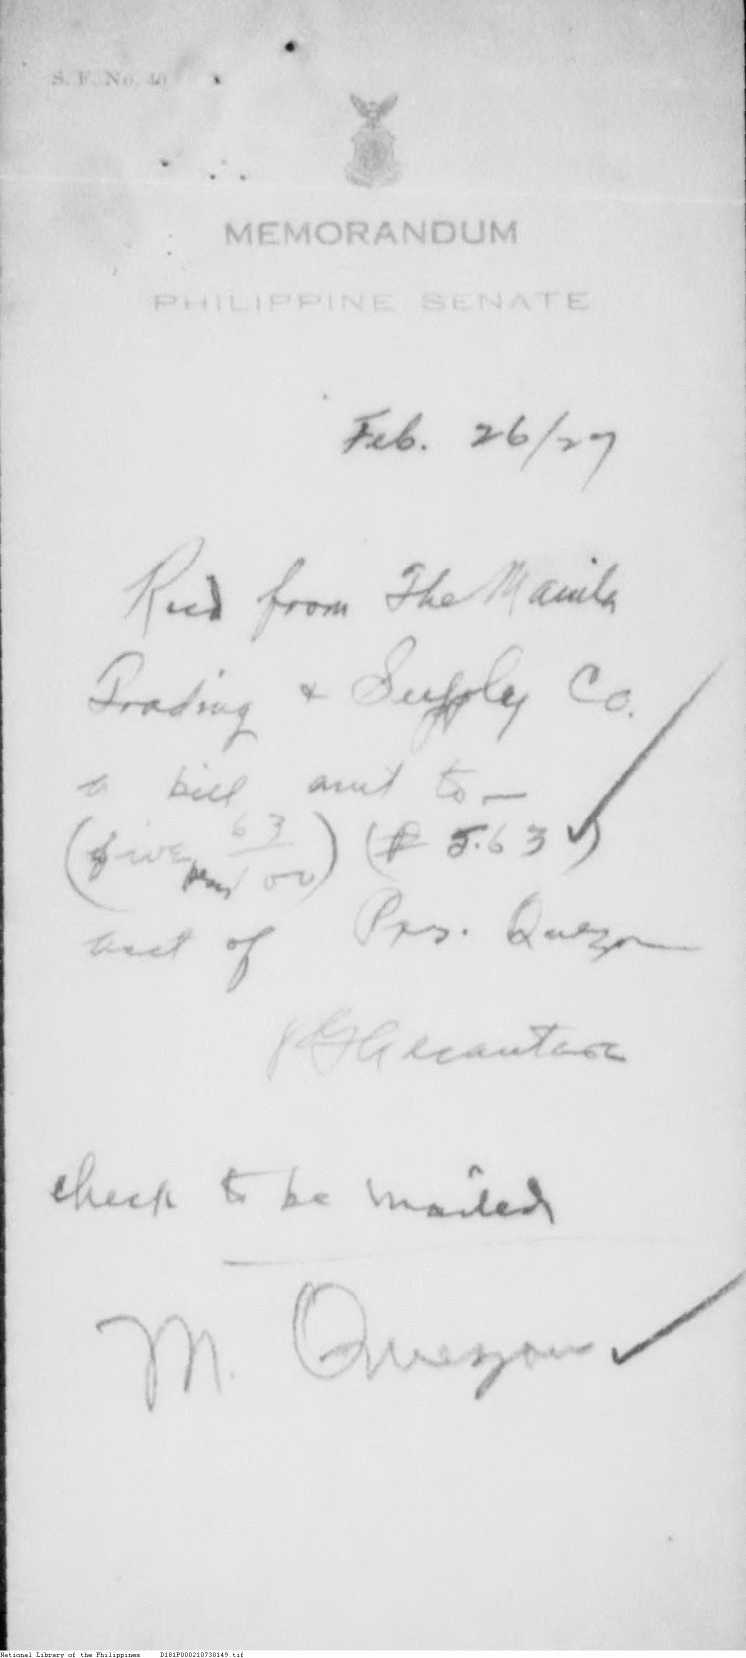 S. F. No. 40
MEMORANDUM
PHILIPPINE SENATE
Feb. 26/27
Recd from The Manila
Trading & Supply Co.
a bill amt to —
(five 63/100) (₱ 5.63)
acct of Pres. Quezon
Alcantara
check to be mailed
M. Quezon
National Library of the Philippines D181P000210738149.tif